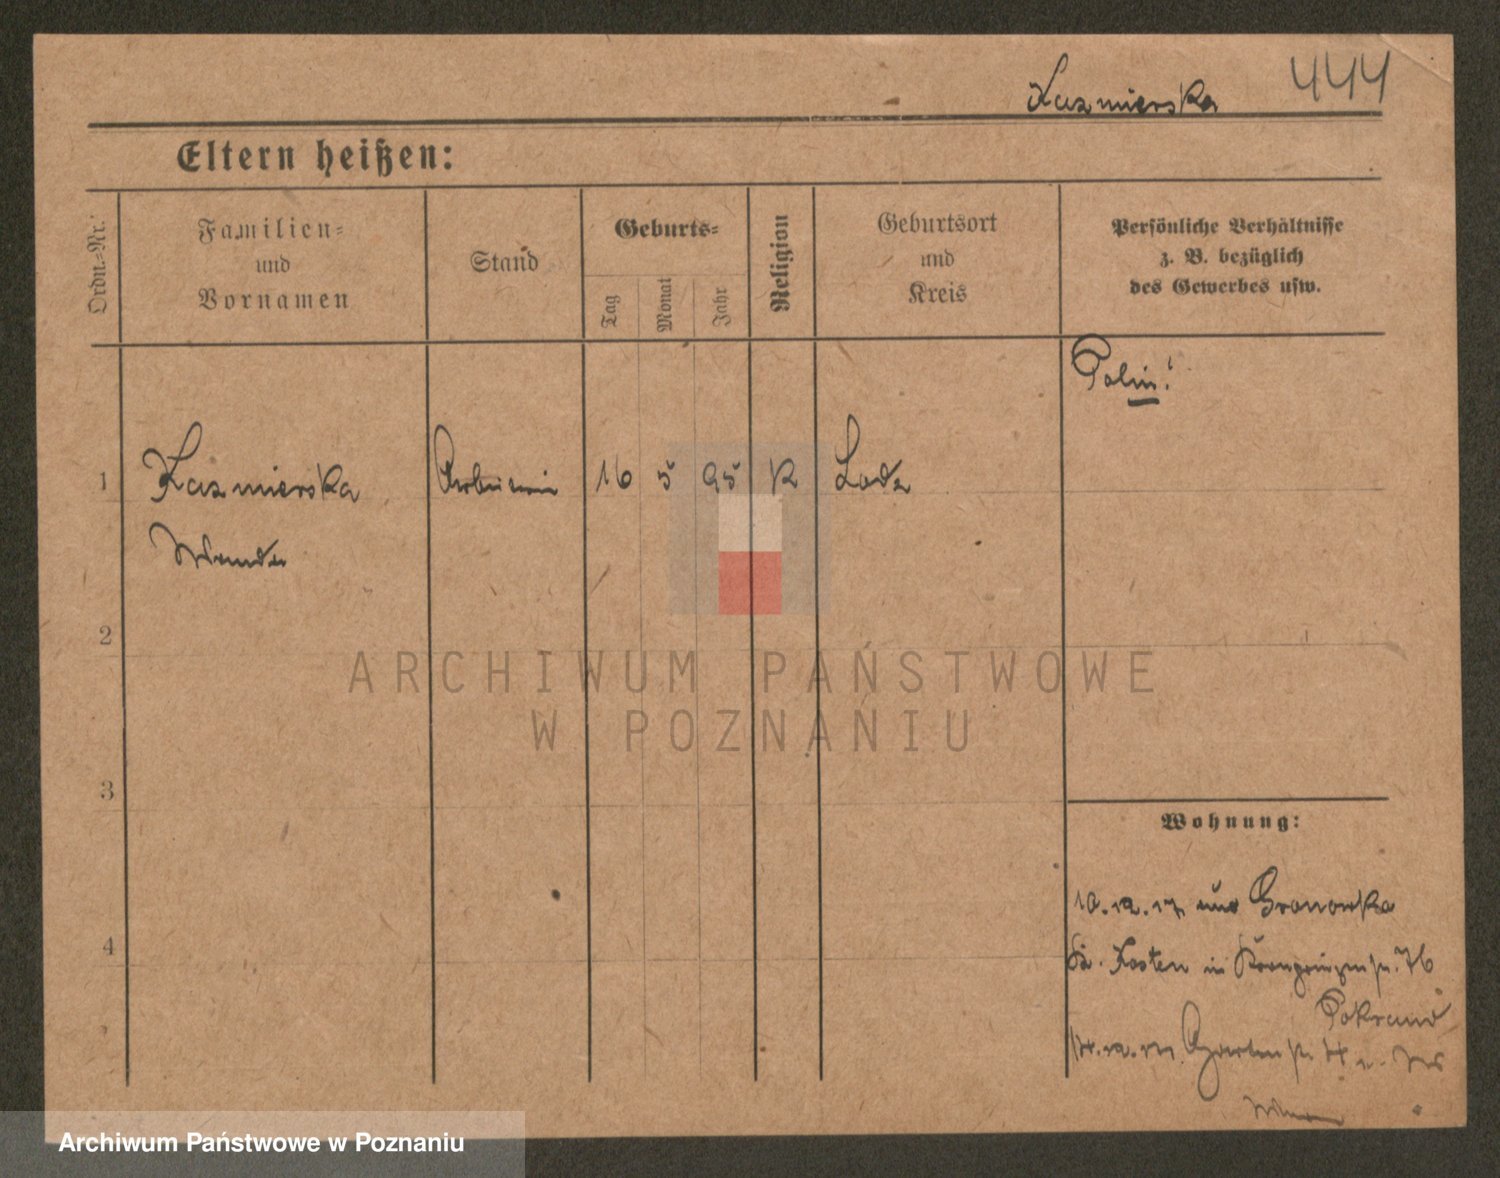 Kazmierska 444
Eltern heißen:
Ordn.-Nr.
Familien-
und
Vornamen
Stand
Geburts-
Tag
Monat
Jahr
Religion
Geburtsort
und
Kreis
Persönliche Verhältnisse
z. B. bezüglich
des Gewerbes usw.
Polin!
1 Kazmierska Arbeiterin 16 5 95 K Lodz
Wanda
2
3
4
Wohnung:
10.12.17 aus Gronowko
Kr. Kosten in Kronprinzenstr. 76
Pokrand
Gartenstr.
ARCHIWUM PAŃSTWOWE
W POZNANIU
Archiwum Państwowe w Poznaniu